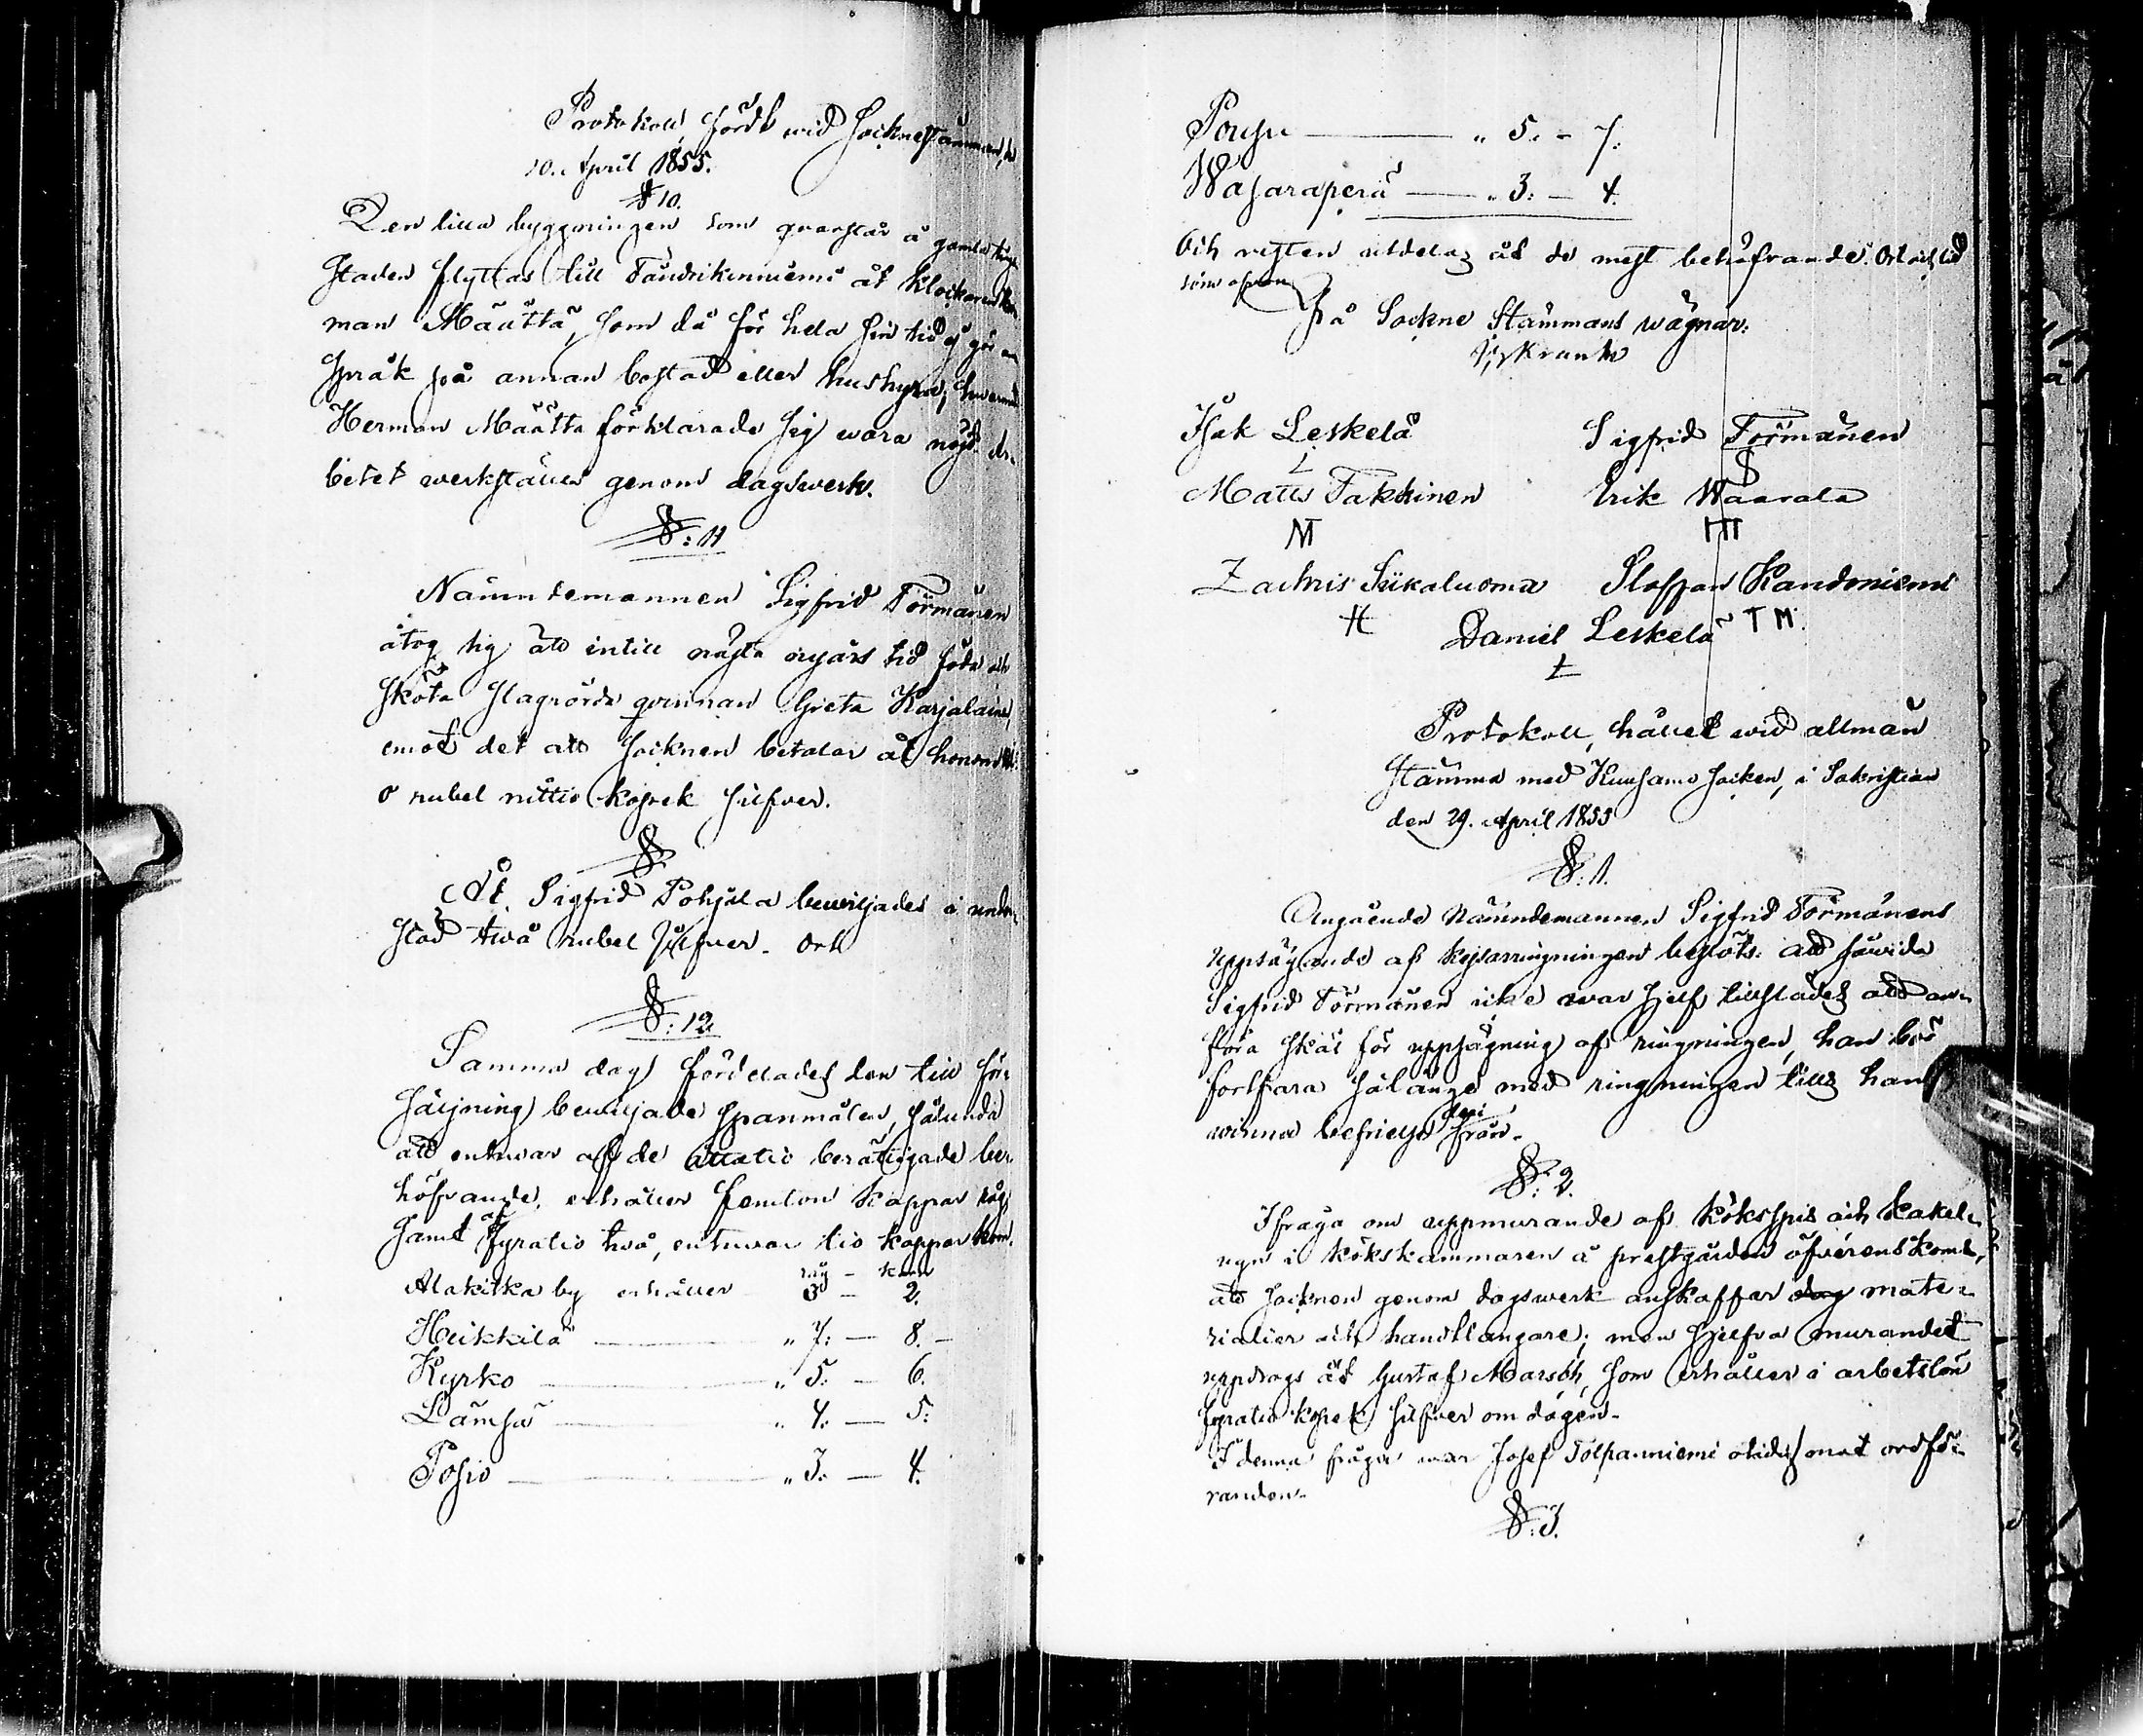 Protokoll, fördt wid Socknestämman, d.
10. April 1855.
§ 10.
Den lilla byggningen som qvarstår å gamla
staden flyttas till Tandrikinniemi åt klockaren Her-
man Määttä, som då för hela sin tid ej gör an
språk på annan bostad eller hushyra, hwarmed
Herman Määttä förklarade sig wara nöjd.
betet werkställes genom dagswerk.
§: 11
Nämndemannen Sigfrid Törmänen
åtog sig att intill nästa nyårs tid föda och
sköta slagrörda qvinnan Greta Karjalainen,
emot det att socknen betalar åt honom
o rubel nittio kopek silfver.
§
Åt Sigfrid Pohjola bewiljades i under-
stöd twå rubel silfver. Och
§: 12
Samma dag fördelades den till för-
säljning bewiljade spanmålen, sålunda
att entwar af de åttatio berättigade be-
höfvande, erhåller femton kappar råg,
samt af fyratio twå, entwar tio kappar korn.
råg – korn
Alakitka by erhåller 3 – 2.
Heikkilä — „ 7: — 8. –
Kyrko — „ 5: — 6.
Lämsä — „ 4. — 5:
Posio — „ 3. — 4.
Poussu — „ 5. – 7.
Wasaraperä — „ 3: — 4.
Och resten utdelas åt de mest behöfvande. Ort och tid
som ofvan
På Sockne Stämmans wägnar:
Krank
Isak Leskelä Sigfrid Törmänen
L S
Matts Takkinen Erik Waarala
M
Zachris Siikaluoma Staffan Kandoniemi
H T M.
Daniel Leskelä
L
Protokoll, hållet wid allmän
stämma med Kuusamo socken, i Sakristian
den 29. April 1855
§: 1.
Angående Nämndemannen Sigfrid Törmänens
uppsägande af kejsarringningen beslöts: att såwida
Sigfrid Törmänen icke war sjelf tillstädes att an-
föra skäl för uppsägning af ringningen, han bör
fortfara sålänge med ringningen tills han
hinna befrielse deri
från.
§: 2.
I fråga om uppmurande af kökspis och kakel-
ugn i kökskammaren å prestgården öfverenskoms,
att socknen genom dagswerk anskaffar dag mate-
rialier och handtlangare; men sjelfva murandet
uppdrogs åt Gustaf Marsch, som erhåller i arbetslön
fyratio kopek silfver om dagen.
I denna fråga war Josef Tolpanniemi olidig mot ordfö-
randen.
§: 3.